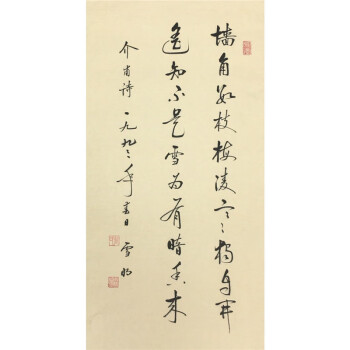 墙角数枝梅凌寒独自开
遥知不是雪为有暗香来
介甫诗一九九二年春日雪明